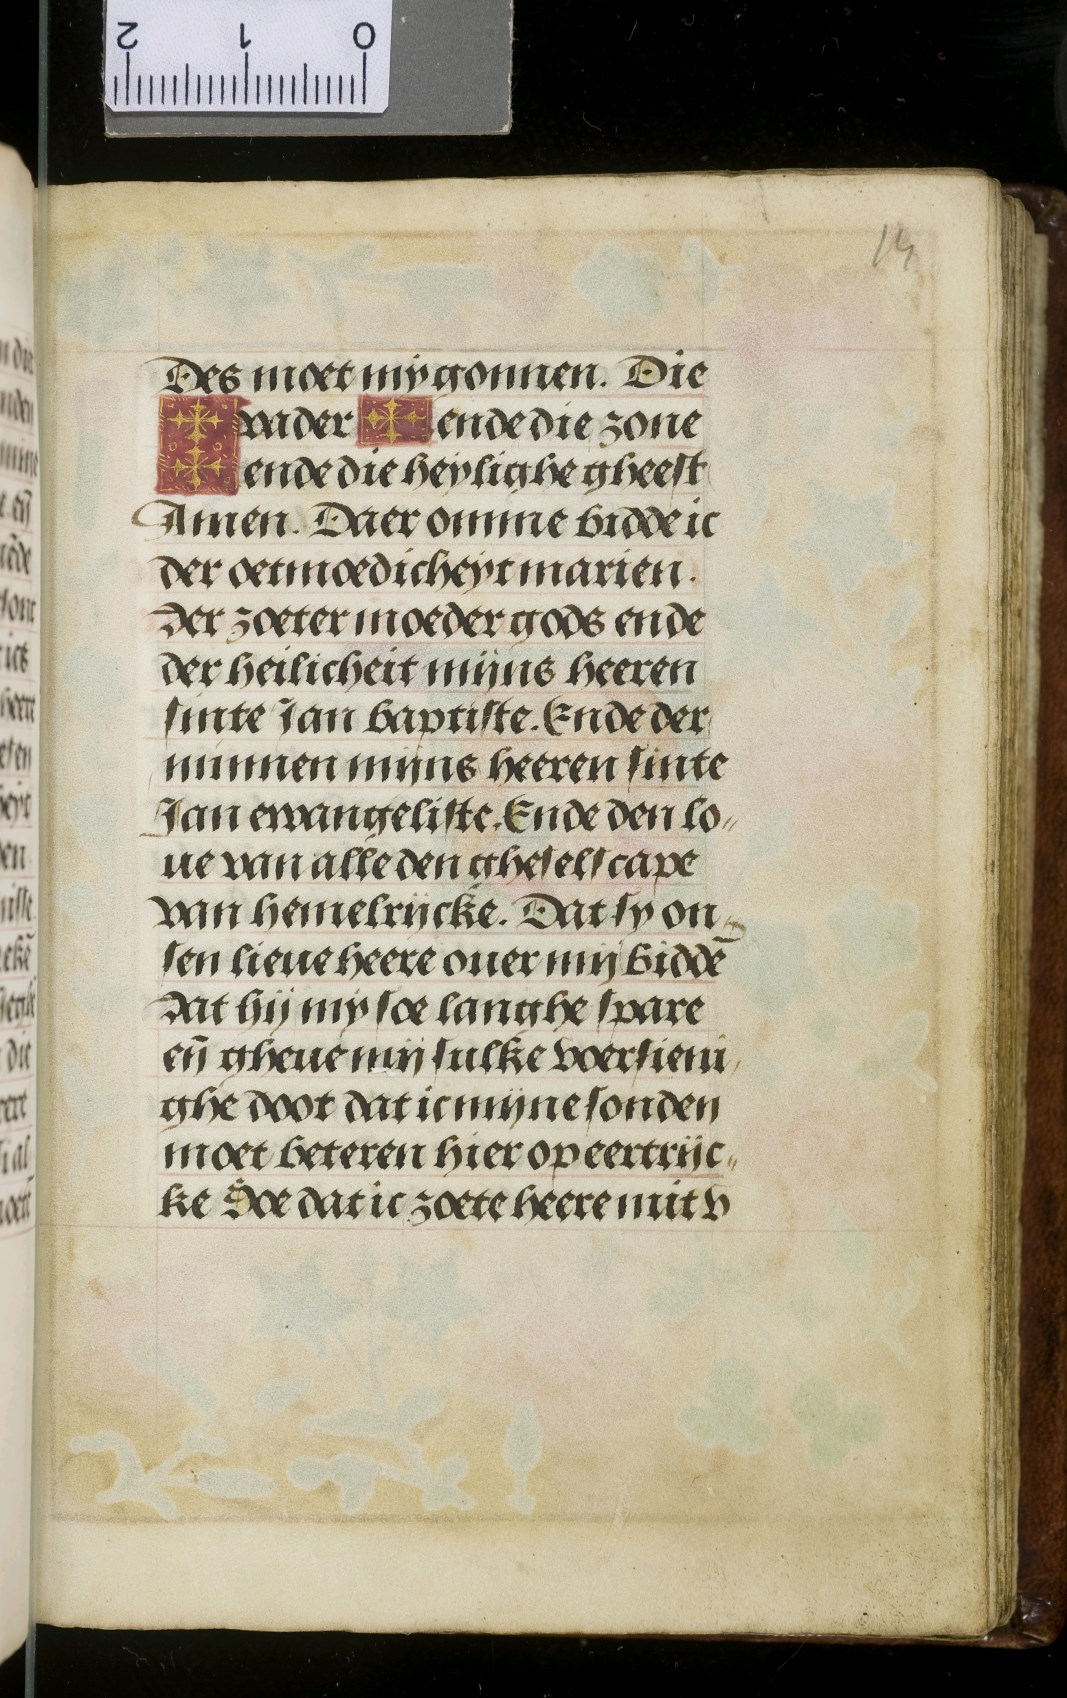 2 1 0
14
Des moet mÿ gonnen. Die
✠ vader ✠ ende die zone
✠ ende die heÿlighe gheest
Amen. Daer omme bidde ic
der oetmoedicheÿt marien.
Der zoeter moeder gods ende
der heilicheit mijns heeren
sinte Jan baptiste. Ende der
minnen mijns heeren sinte
Jan ewangeliste. Ende den lo„
ue van alle den gheselscape
van hemelrijcke. Dat sy on„
sen lieue heere ouer mij biddē
Dat hij mÿ soe langhe spare
eñ gheue mij sulke voersieni„
ghe doot dat ic mijne sonden
moet beteren hier op eertrijc„
ke Soe dat ic zoete heere mit v